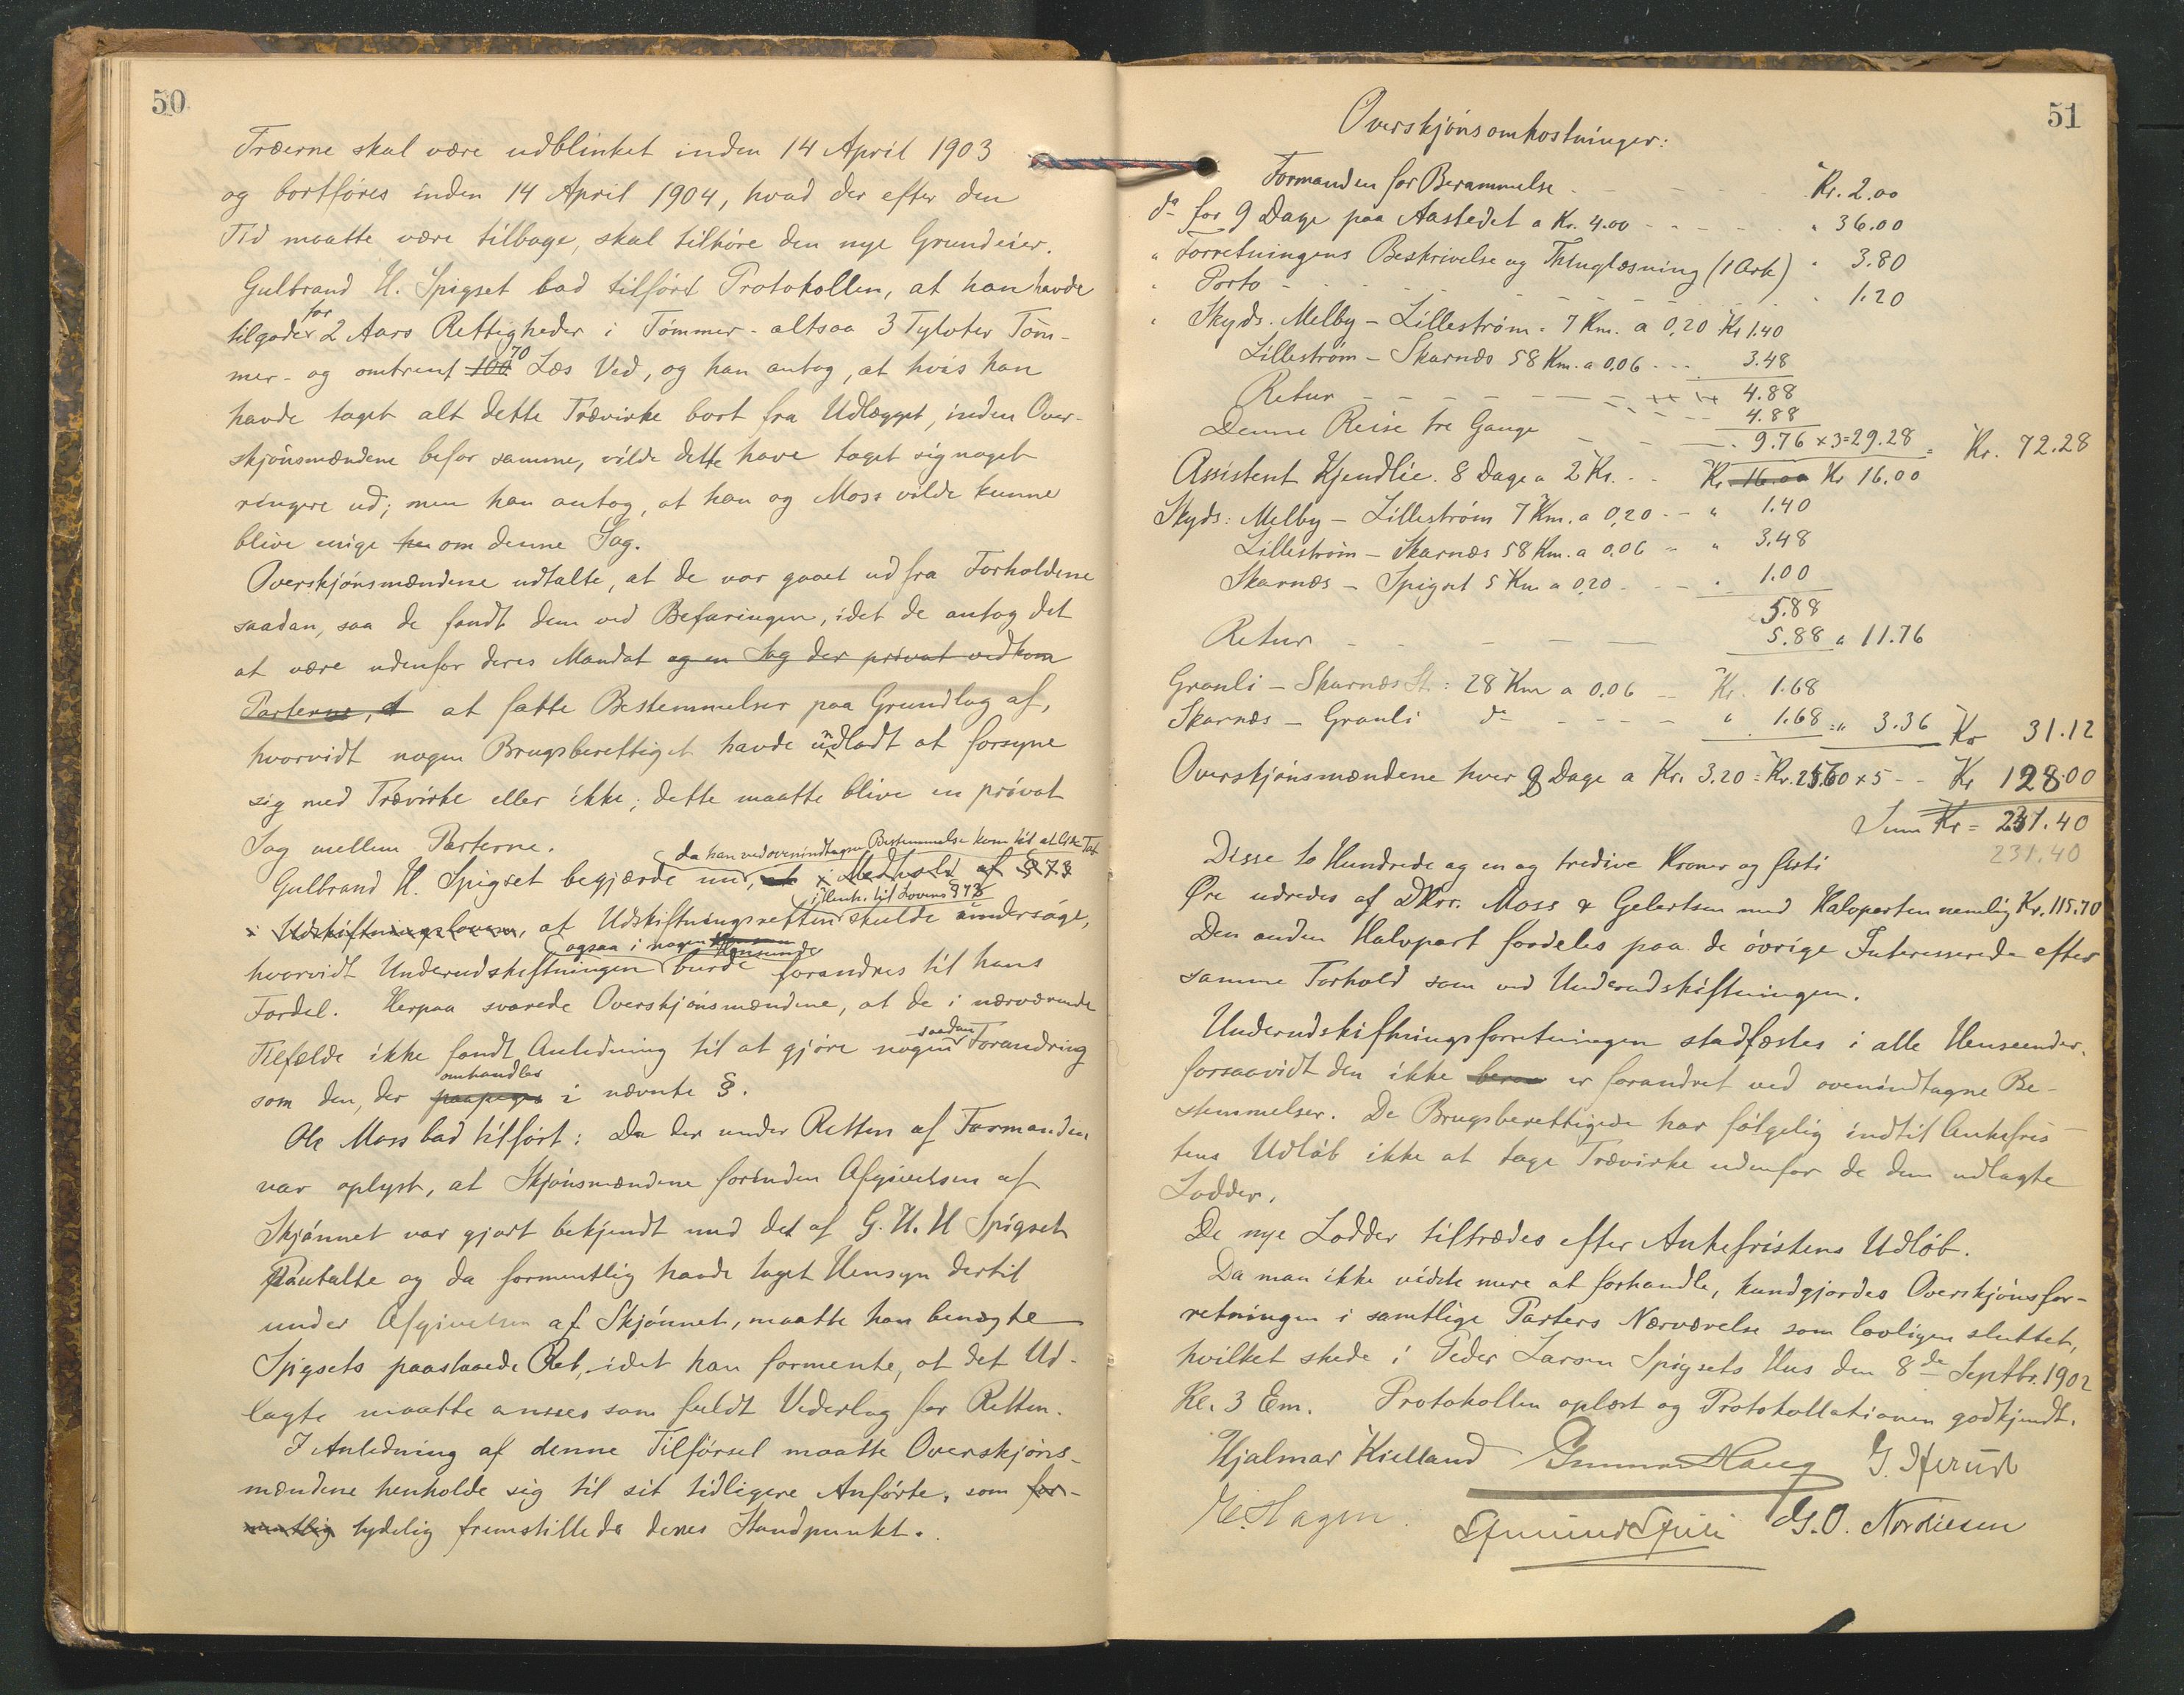 50
Træerne skal være udblinket inden 14 April 1903
og bortföres inden 14 April 1904, hvad der efter den
Tid maatte være tilbage, skal tilhöre den nye Grundeier.
Gulbrand H. Spigset bad tilfört Protokollen, at han havde
tilgode for 2 Aars Rettigheder i Tömmer - altsaa 3 Tylvter Töm-
mer - og omtrent 100 70 Læs Ved, og han antog, at hvis han
havde taget alt dette Trævirke bort fra Udlægget, inden Over-
skjönsmændene befor samme, vilde dette have taget sig noget
ringere ud; men han antog, at han og Moss vilde kunne
blive enige her om denne Sag.
Overskjönsmændene udtalte, at de var gaaet ud fra Forholdene
saadan, saa de fandt dem ved Befaringen, idet de antog det
at være udenfor deres Mandat og en Sag der privat vedkom
Parterne, at at fatte Bestemmelser paa Grundlag af,
hvorvidt nogen Brugsberettiget havde undladt at forsyne
sig med Trævirke eller ikke; dette maatte blive en privat
Sag mellem Parterne.
da han ved ovenindtagne Bestemmelse kom til at lide Tab
Gulbrand H. Spigset begjærde nu, at i Medhold af § 73
i Henh. til Lovens § 73
i Udskiftningsloven, at Udskiftningsretten skulde undersöge,
ogsaa i nogen Henseende
hvorvidt Underudskiftningen burde forandres til hans
Fordel. Herpaa svarede Overskjönsmændene, at de i nærværende
Tilfælde ikke fandt Anledning til at gjöre nogen saadan Forandring
som den, der paapeges omhandles i nævnte §.
Ole Moss bad tilfört: Da der under Retten af Formanden
var oplyst, at Skjönsmændene forinden Afgivelsen af
Skjönnet var gjort bekjendt med det af G. H. H Spigset
Paatalte og da formentlig havde taget Hensyn dertil
under Afgivelsen af Skjönnet, maatte han benægte
Spigsets paastaaede Ret, idet han formente, at det Ud-
lagte maatte ansees som fuldt Vederlag for Retten.
I Anledning af denne Tilförsel maatte Overskjöns-
mændene henholde sig til sit tidligere Anförte, som for-
mentlig tydelig fremstillede deres Standpunkt.
51
Overskjönsomkostninger:
Formanden for Berammelse - - - Kr. 2.00
do for 9 Dage paa Aastedet a Kr. 4.00 - - - " 36.00
" Forretningens Beskrivelse og Thinglæsning (1 Ark) " 3.80
" Porto - - - " 1.20
" Skyds. Melby - Lilleström. 7 Km. a 0,20 Kr 1.40
Lilleström - Skarnæs 58 Km. a 0,06 - - - 3.48
4.88
Retur - - - 4.88
Denne Reise tre Gange - - - 9.76 x 3 = 29.28 = Kr. 72.28
Assistent Kjendlie. 8 Dage a 2 Kr. - - Kr 16.00 Kr 16.00
Skyds: Melby - Lilleström 7 Km. a 0,20 - - " 1.40
Lilleström - Skarnæs 58 Km. a 0,06 - " 3.48
Skarnæs - Spigset 5 Km a 0,20 - - - " 1.00
5.88
Retur - - - 5.88 " 11.76
Granli - Skarnæs St: 28 Km a 0.06 - Kr. 1.68
Skarnæs - Granli do - - - - " 1.68 = " 3.36 Kr 31.12
Overskjönsmændene hver 8 Dage a Kr. 3.20 = Kr. 25.60 x 5 - - Kr 128.00
Sum Kr = 231.40
231.40
Disse to Hundrede og en og tredive Kroner og firti
Öre udredes af DHrr. Moss & Gelertsen med Halvparten nemlig Kr. 115.70
Den anden Halvpart fordeles paa de övrige Interesserede efter
samme Forhold som ved Underudskiftningen.
Underudskiftningsforretningen stadfæstes i alle Henseender,
forsaavidt den ikke er forandret ved ovenindtagne Be-
stemmelser. De Brugsberettigede har fölgelig indtil Ankefris-
tens Udlöb ikke at tage Trævirke udenfor de dem udlagte
Lodder.
De nye Lodder tiltrædes efter Ankefristens Udlöb.
Da man ikke vidste mere at forhandle, kundgjordes Overskjönsfor-
retningen i samtlige Parters Nærværelse som lovligen sluttet,
hvilket skede i Peder Larsen Spigsets Hus den 8de Septbr. 1902
Kl. 3 Em. Protokollen oplæst og Protokollationen godkjendt.
Hjalmar Kielland Gunnar Haug G.
E. Hagen. G. O. Nordiesen